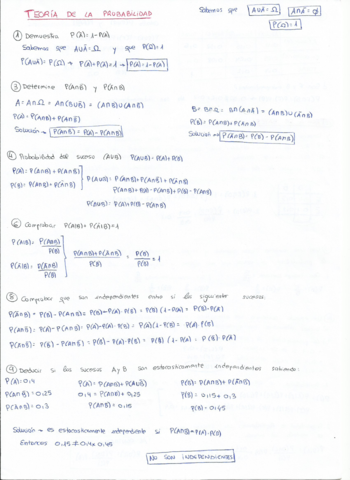 TEORÍA DE LA PROBABILIDAD
Sabemos que AUĀ=Ω A∩Ā=∅
P(Ω)=1
① Demuestra P(Ā)=1-P(A)
Sabemos que AUĀ=Ω y que P(Ω)=1
P(AUĀ)=P(Ω) → P(A)+P(Ā)=1 → P(Ā)=1-P(A)
③ Determine P(A∩B̄) y P(Ā∩B)
A = A∩Ω = A∩(BUB̄) = (A∩B)U(A∩B̄)
P(A)= P(A∩B)+P(A∩B̄)
Solución → P(A∩B̄)= P(A)-P(A∩B)
B= B∩Ω= B∩(A∩Ā)= (A∩B)U(Ā∩B)
P(B)= P(A∩B)+P(Ā∩B)
Solución → P(Ā∩B)= P(B)-P(A∩B)
④ Probabilidad del suceso (AUB) P(AUB)= P(A)+P(B)
P(A)= P(A∩B)+P(A∩B̄)
P(B)= P(A∩B)+P(Ā∩B)
P(AUB)= P(A∩B)+P(A∩B̄)+P(Ā∩B)
P(AUB)= P(A)+P(B)-P(A∩B)
⑥ Comprobar P(A|B)+P(Ā|B)=1
P(A|B)= P(A∩B)/P(B)
P(Ā|B)= P(Ā∩B)/P(B)
P(A∩B)+P(Ā∩B)/P(B) = P(B)/P(B) = 1
⑧ Comprobar que son independientes entre sí los siguientes sucesos:
P(Ā∩B)= P(B)-P(A∩B)= P(B)-P(A)·P(B)= P(B)(1-P(A))= P(B)·P(Ā)
P(A∩B̄)= P(A)-P(A∩B)= P(A)-P(A)·P(B)= P(A)(1-P(B))= P(A)·P(B̄)
⑨ Deducir si los sucesos A y B son estocásticamente independientes sabiendo:
P(A)=0,4
P(A∩B̄)=0,25
P(Ā∩B)=0,3
0,4= P(A∩B)+0,25
P(A∩B)=0,15
P(B)= P(A∩B)+P(Ā∩B)
P(B)= 0,15+0,3
P(B)=0,45
Solución → es estocásticamente independiente si P(A∩B)=P(A)·P(B)
Entonces 0,15≠0,4·0,45
NO SON INDEPENDIENTES